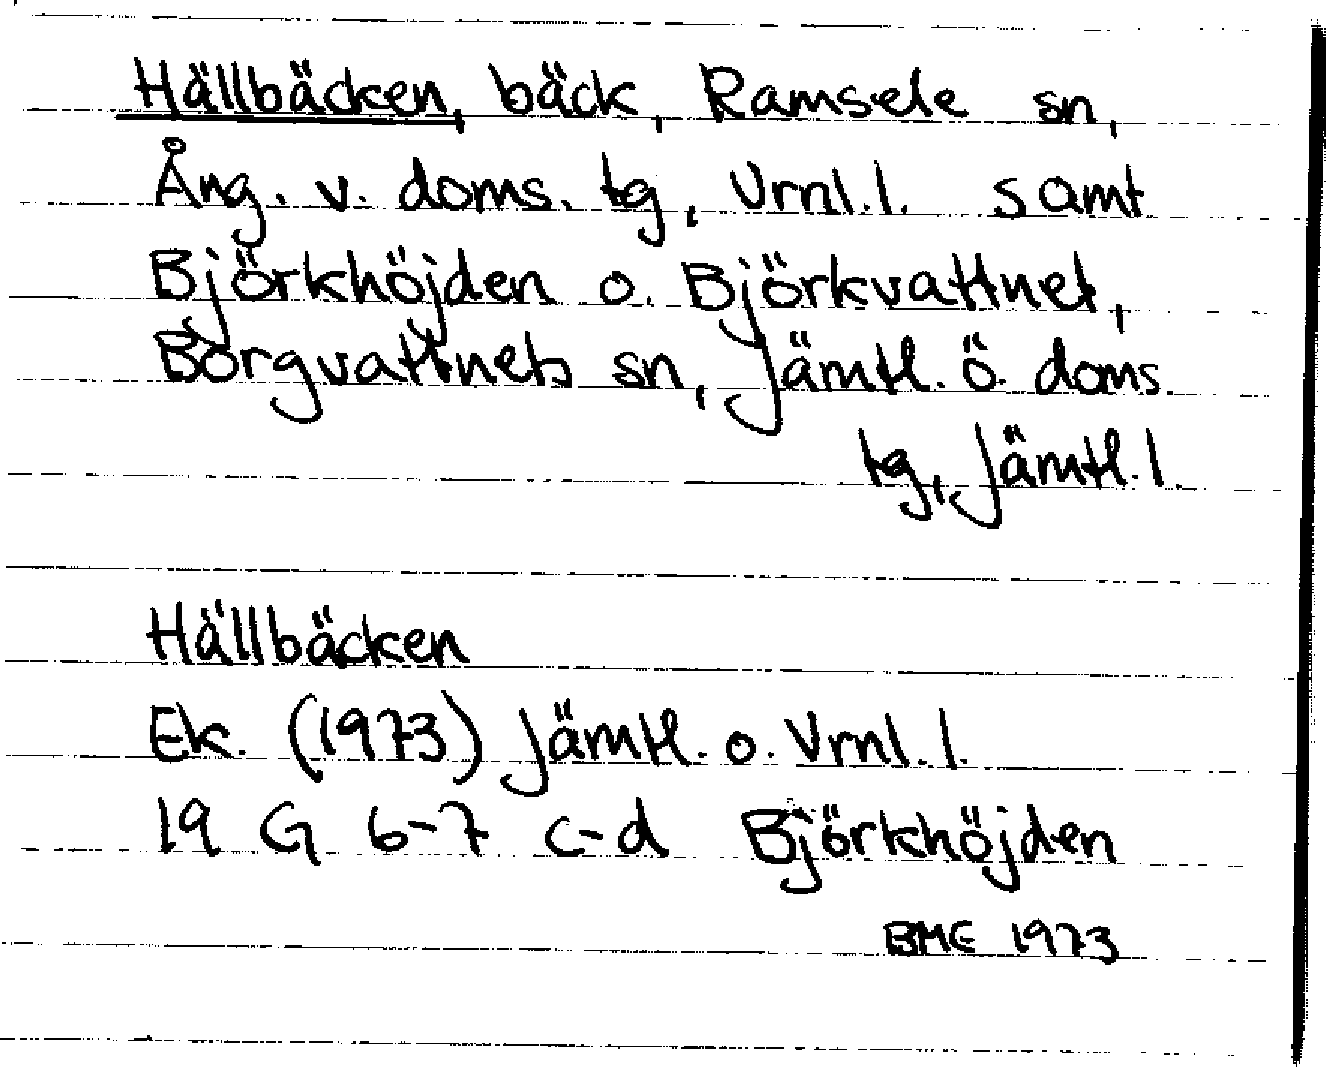 Hällbäcken, bäck, Ramsele sn,
Ång. v. doms. tg, Vrnl.l. samt
Björkhöjden o. Björkvattnet,
Borgvattnets sn, Jämtl. ö. doms.
tg, Jämtl. l.
Hällbäcken
Ek. (1973) Jämtl. o. Vrnl. l.
19 G 6-7 c-d Björkhöjden
BME 1973